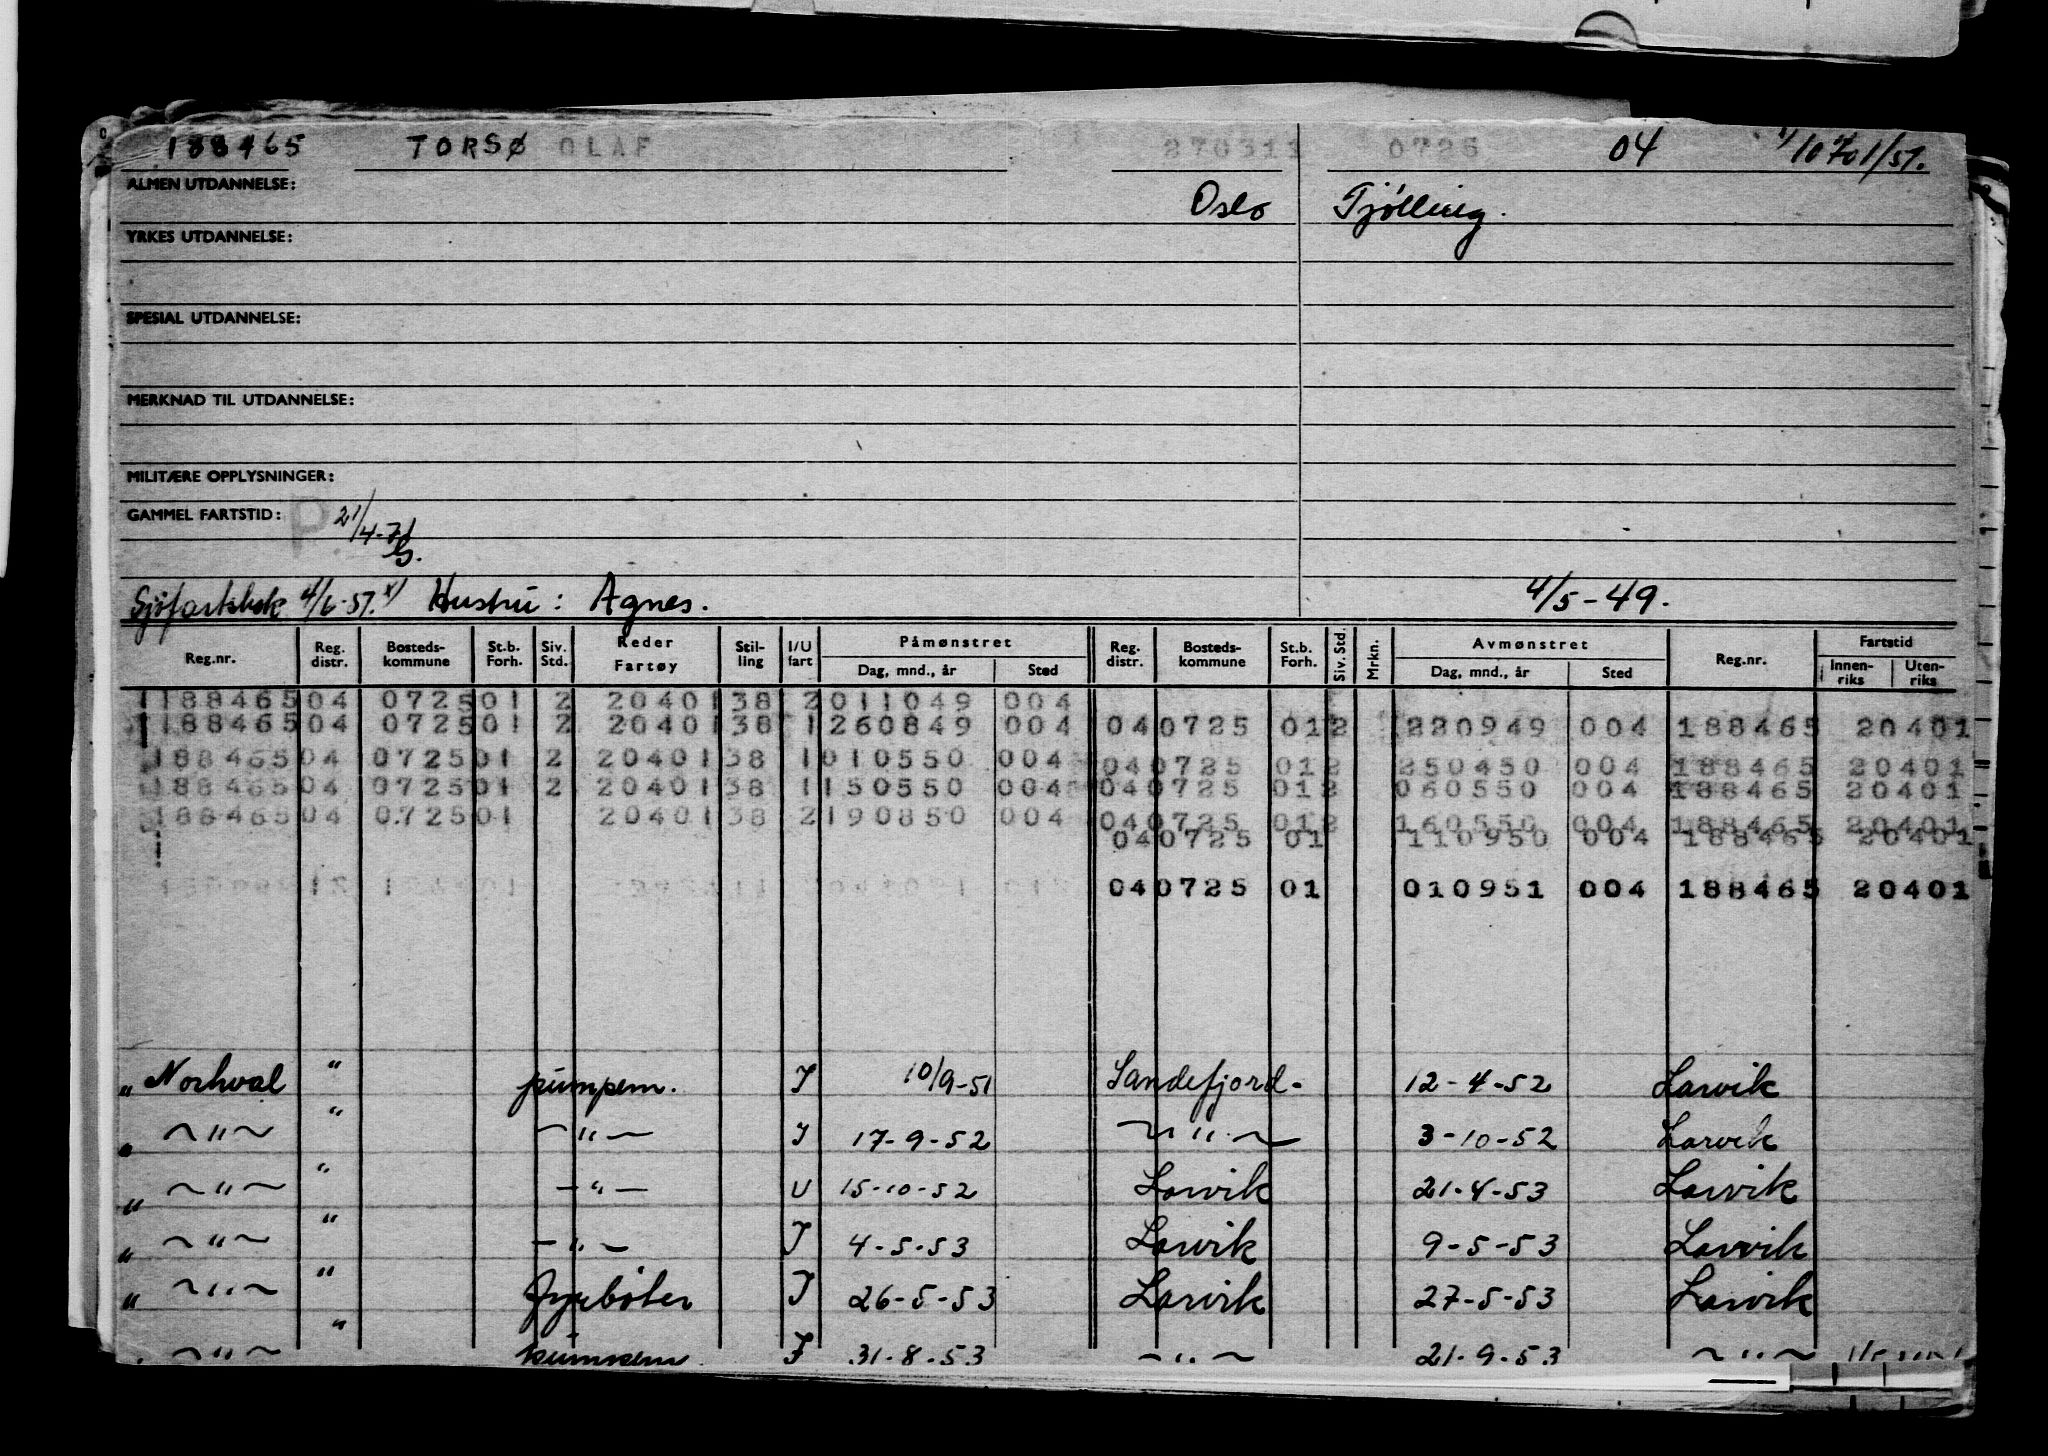 188465 TORSØ OLAF 270311 0725 04
ALMEN UTDANNELSE:
Oslo Tjølling.
YRKES UTDANNELSE:
SPESIAL UTDANNELSE:
MERKNAD TIL UTDANNELSE:
MILITÆRE OPPLYSNINGER:
GAMMEL FARTSTID: P 21/4-71
Sjøfartsbok 4/6-57. Hustru: Agnes. 4/5-49.
Reg.nr. Reg. distr. Bosteds-kommune St.b. Forh. Siv. Std. Reder Fartøy Stil-ling I/U fart Påmønstret Dag, mnd., år Sted Reg. distr. Bosteds-kommune St.b. Forh. Siv. Std. Mrkn. Avmønstret Dag, mnd., år Sted Reg.nr. Fartstid Innen-riks Uten-riks
188465 04 0725 01 2 20401 38 2 011049 004
188465 04 0725 01 2 20401 38 1 260849 004 04 0725 01 2 220949 004 188465 20401
188465 04 0725 01 2 20401 38 1 010550 004 04 0725 01 2 250450 004 188465 20401
188465 04 0725 01 2 20401 38 1 150550 004 04 0725 01 2 060550 004 188465 20401
188465 04 0725 01 20401 38 2 190850 004 04 0725 01 2 160550 004 188465 20401
04 0725 01 110950 004 188465 20401
04 0725 01 010951 004 188465 20401
" Norhval " pumpem. I 10/9-51 Sandefjord - 12-4-52 Larvik
" ~"~ " -"- I 17-9-52 ~"~ 3-10-52 Larvik
" ~"~ " -"- U 15-10-52 Larvik 21-4-53 Larvik
" ~"~ " -"- I 4-5-53 Larvik 9-5-53 Larvik
" ~"~ " Fyrbøter I 26-5-53 Larvik 27-5-53 Larvik
~"~ " pumpem. I 31-8-53 -"- 21-9-53 ~"~